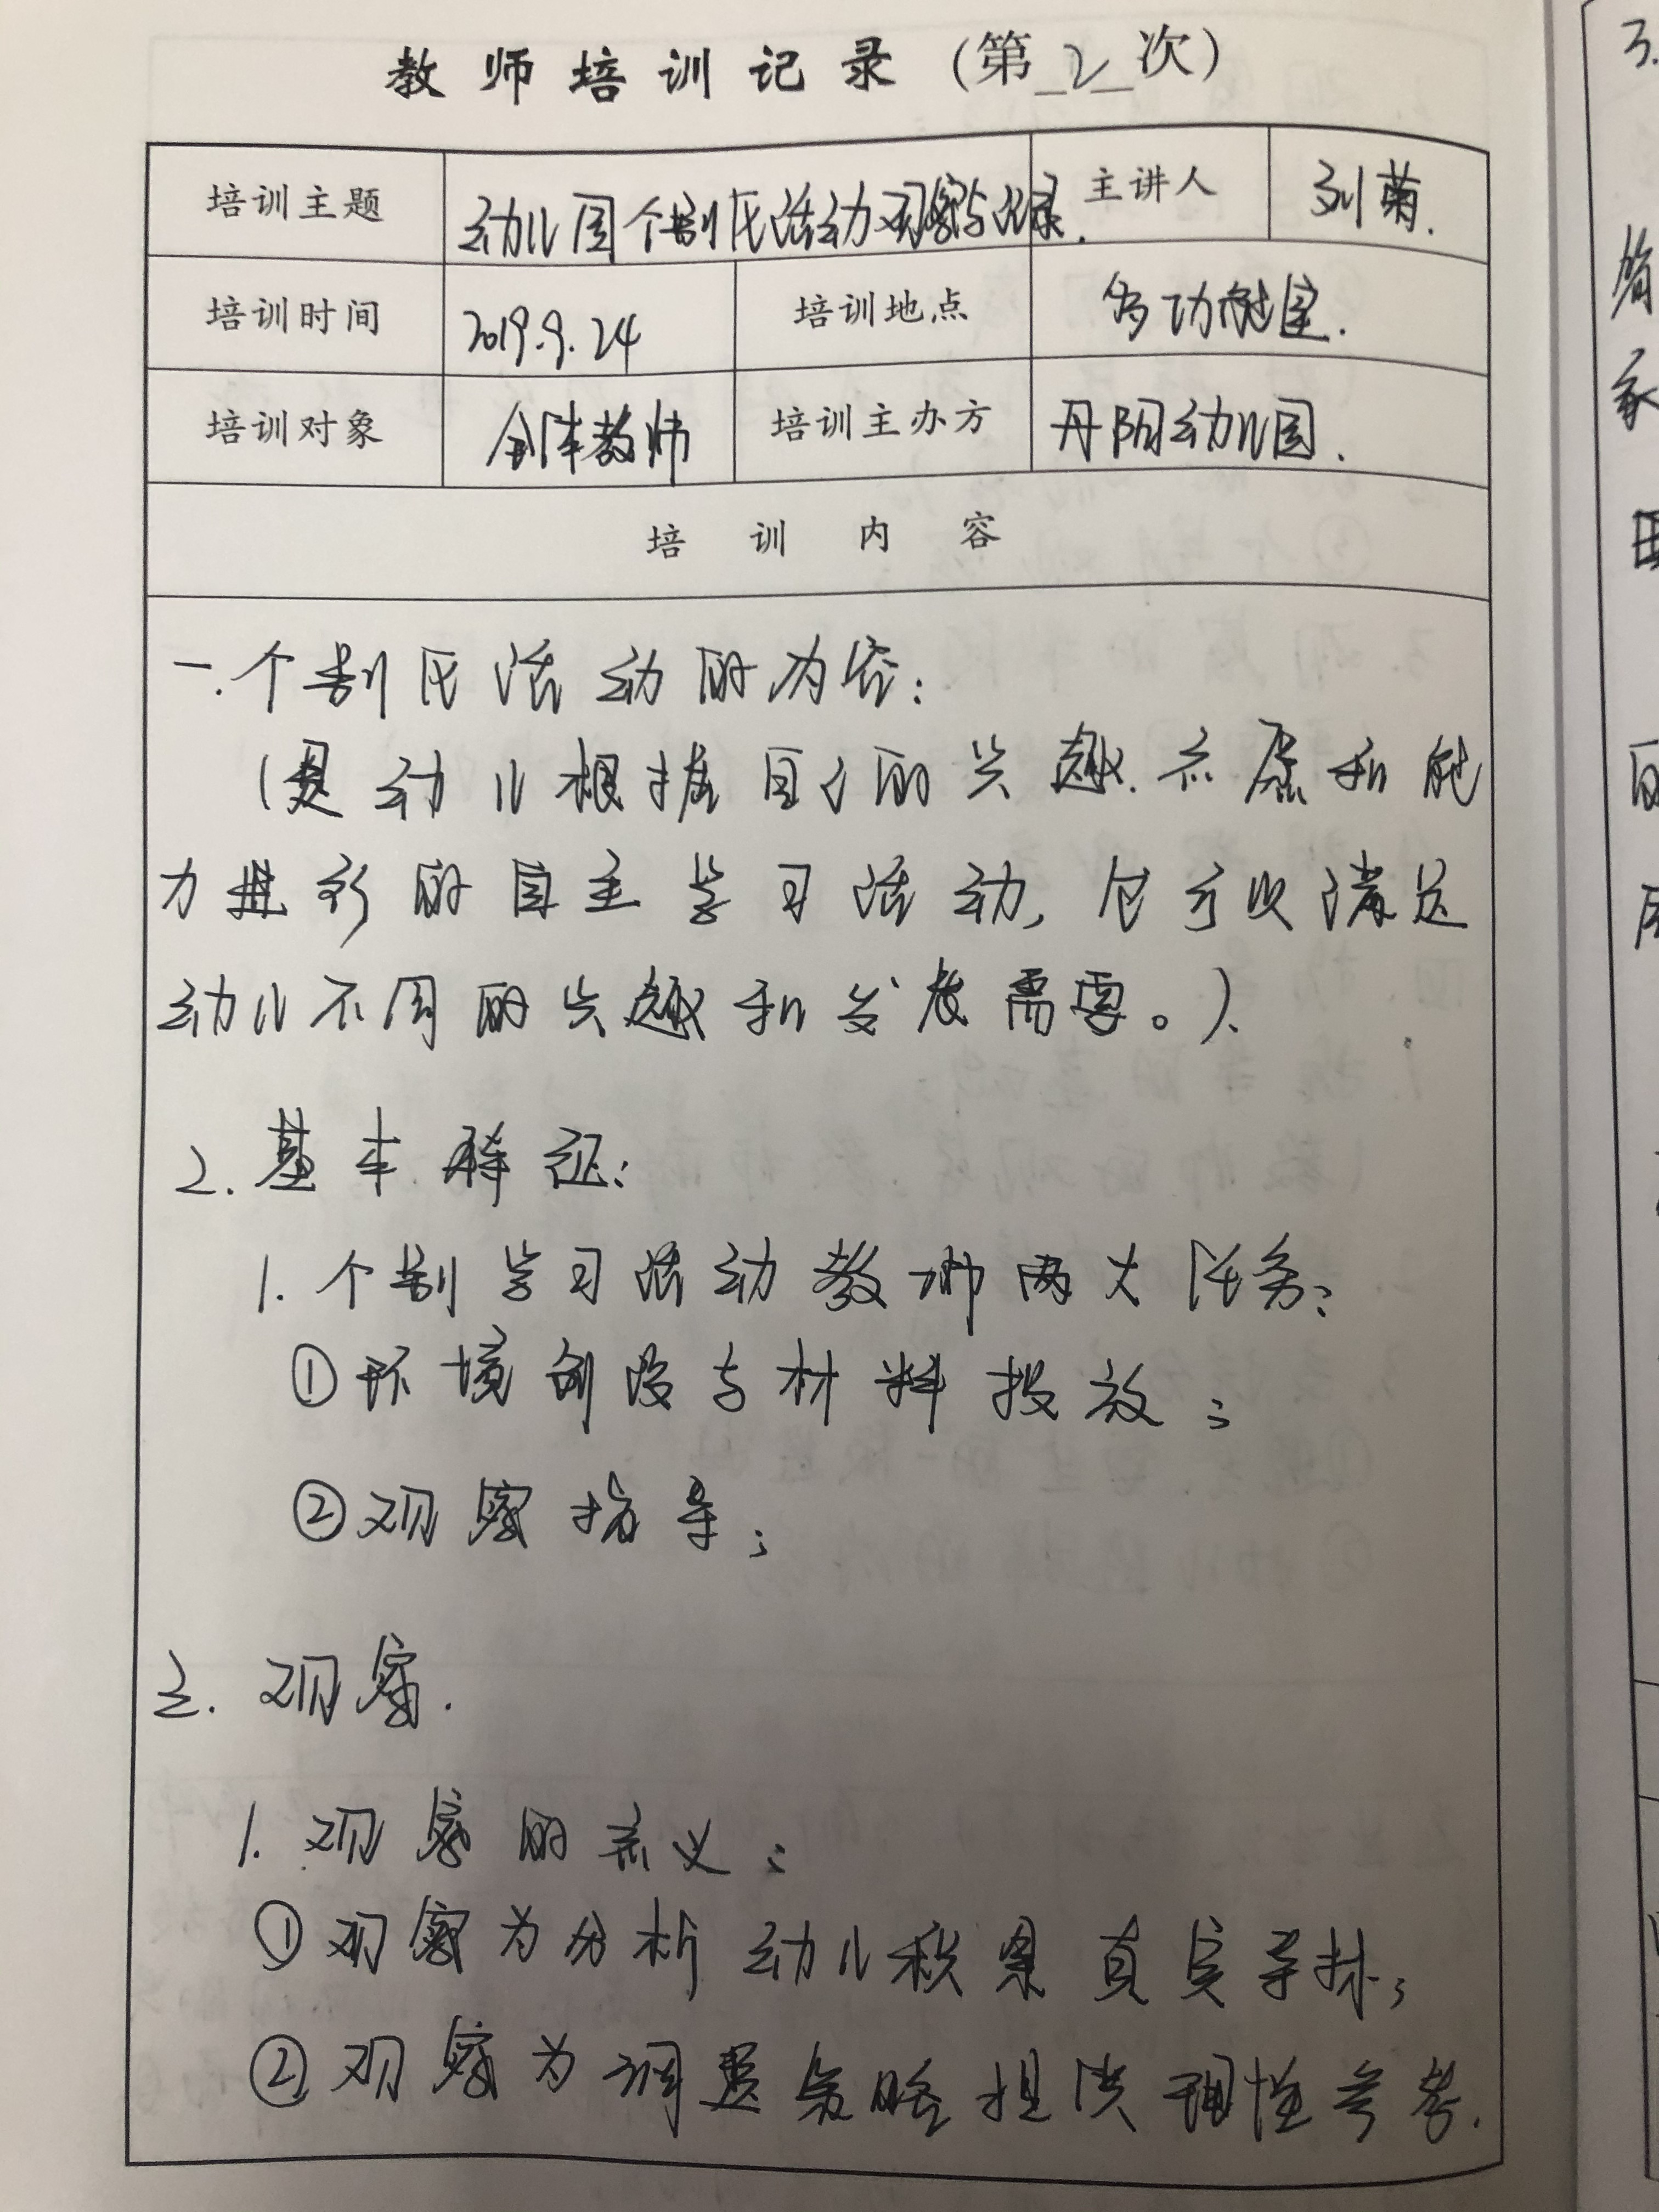 教师培训记录(第2次)
培训主题 幼儿园个别化活动观察与记录. 主讲人 刘菊.
培训时间 2019.9.24 培训地点 多功能室.
培训对象 全体教师 培训主办方 丹阴幼儿园.
培训内容
一.个别化活动的内容:
(是幼儿根据自己的兴趣.意愿和能
力进行的自主学习活动,它可以满足
幼儿不同的兴趣和发展需要。).
2.基本特征:
1.个别学习活动教师两大任务:
①环境创设与材料投放;
②观察指导;
三.观察.
1.观察的意义:
①观察为分析幼儿积累真实素材;
②观察为调整策略提供理性参考.
3.
家